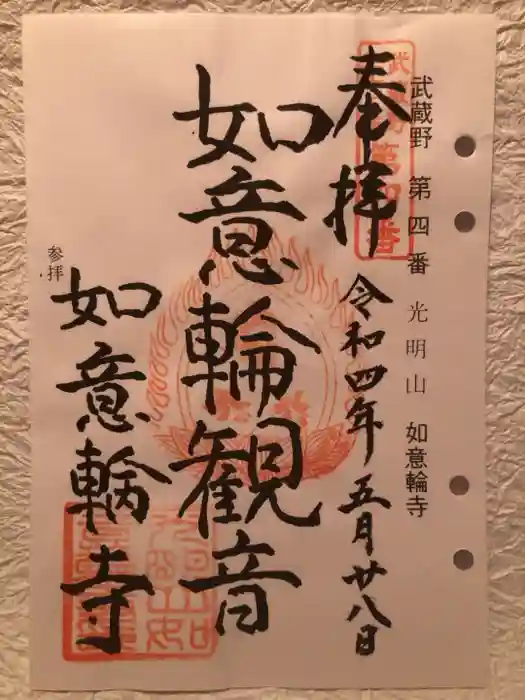 武蔵野 第四番 光明山 如意輪寺
武蔵野第四番
奉拝
令和四年五月廿八日
如意輪観音
参拝
如意輪寺